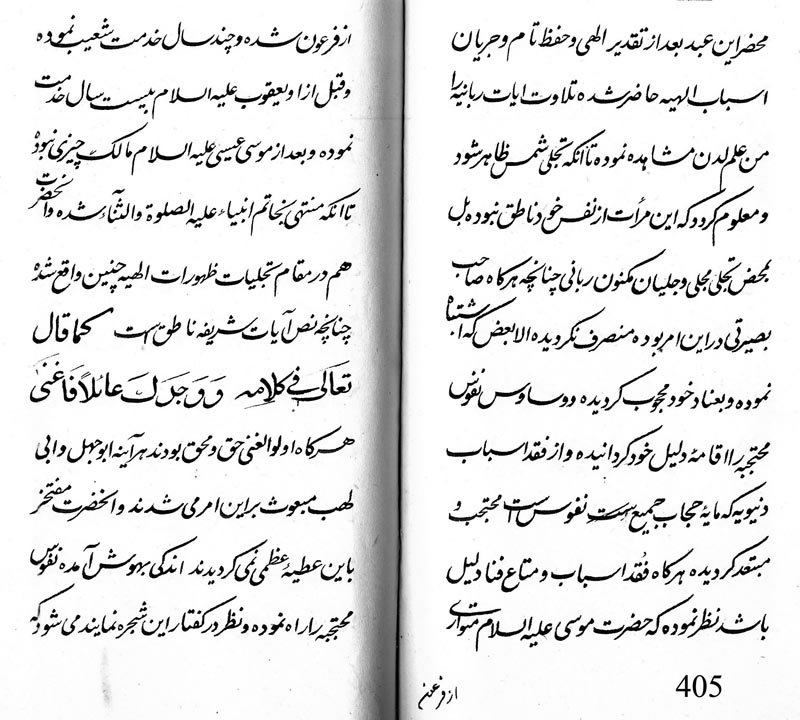 محضر این عبد بعد از تقدیر الهی و حفظ تام و جریان
اسباب الهیه حاضر شده تلاوت ایات ربانیه را
من علم لدن مشاهده نموده تا آنکه تجلی شمس ظاهر شود
و معلوم کردد که این مرأت از نفس خود ناطق نبوده بل
بمحض تجلی مجلی و جلیان مکنون ربانی چنانچه هرکاه صاحب
بصیرتی در این امر بوده منصرف نکردیده الا بعض که اشتباه
نموده و بعناد خود محجوب کردیده و وساوس نفوس
محتجبه را اقامهٔ دلیل خود کردانیده و از فقد اسباب
دنیویه که مایهٔ حجاب جمیع هست نفوس است محتجب و
مبتعد کردیده هرکاه فقد اسباب و متاع فنا دلیل
باشد نظر نموده که حضرت موسی علیه السلام متواری
از فرعون
405
از فرعون شده و چند سال خدمت شعیب نموده
و قبل از او یعقوب علیه السلام بیست سال خدمت
نموده و بعد از موسی عیسی علیه السلام مالک چیزی نبوده
تا انکه منتهی بخاتم انبیاء علیه الصلوة والثنآء شده و انحضرت
هم در مقام تجلیات ظهورات الهیه چنین واقع شده
چنانچه نص آیات شریفه ناطق است کما قال
تعالی فی کلامه وَوَجَدَکَ عائلاً فَاَغنی
هرکاه اولو الغنی حق و محق بودند هرآینه ابوجهل و ابی
لهب مبعوث براین امر می شدند و انحضرت مفتخر
باین عطیهٔ عظمی نمی کردیدند اندکی بهوش آمده نفوس
محتجبه را راه نموده و نظر در کفتار این شجره نمایند می شود که